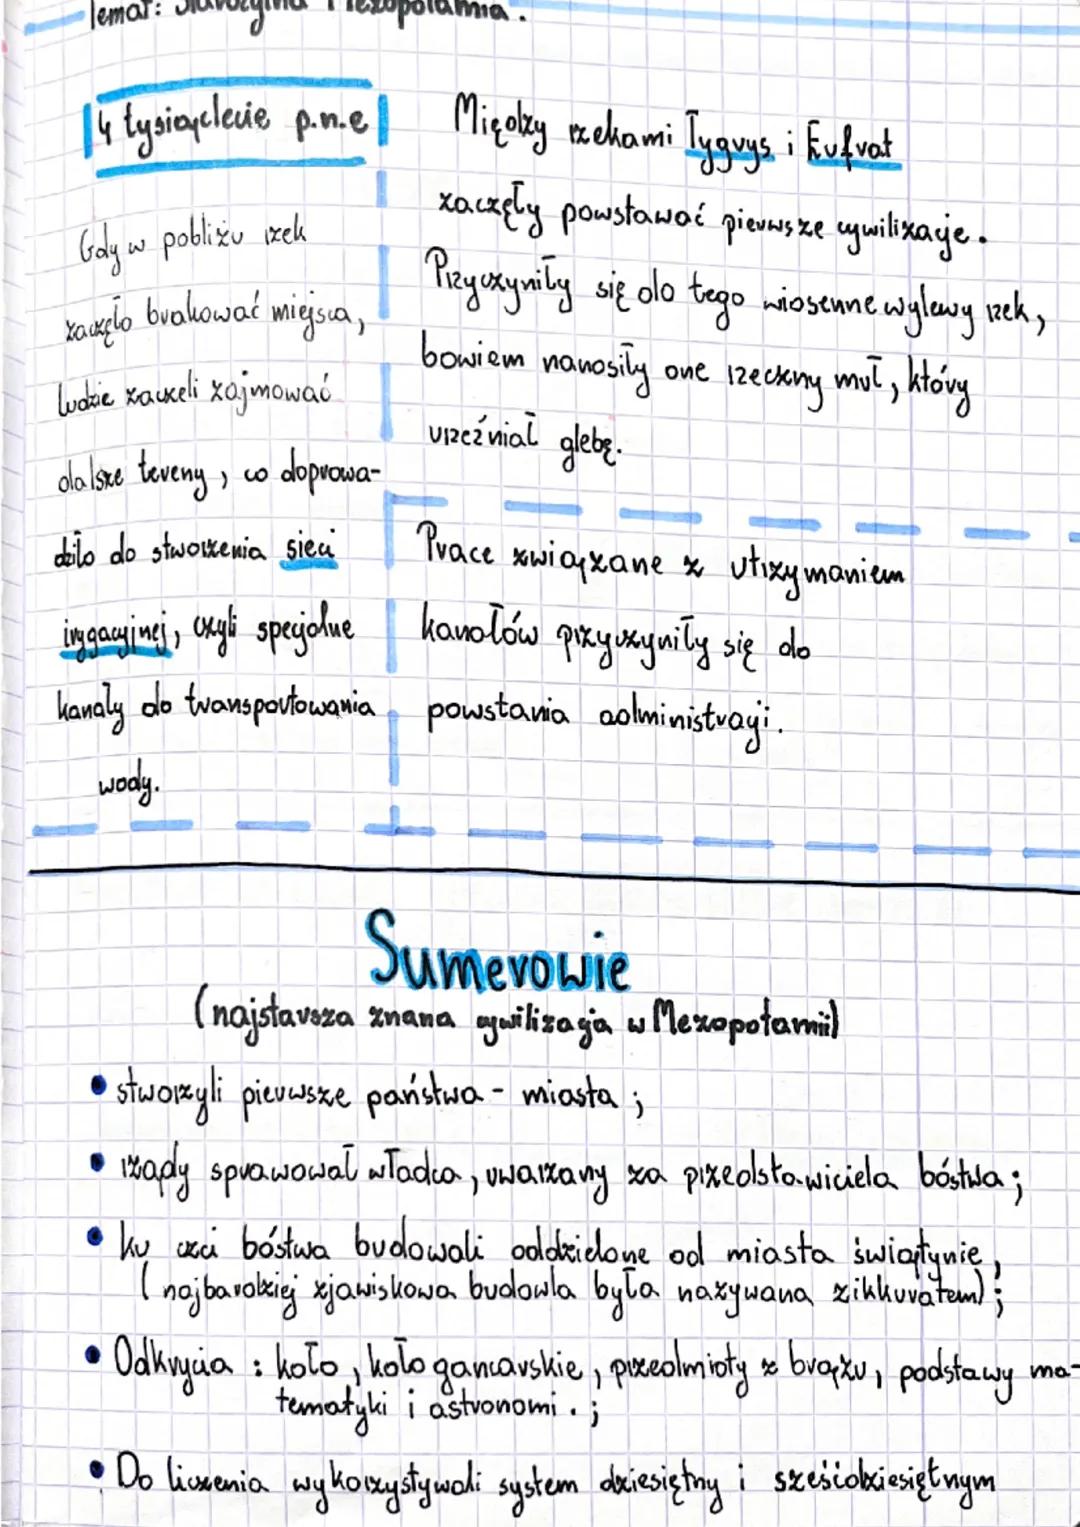 Temat: Starożytna Mezopotamia.
4 tysiąclecie p.n.e
Gdy w pobliżu rzek
zaczęło brakować miejsca,
ludzie zaczeli zajmować
dalsze tereny, co doprowa-
dziło do stworzenia sieci
irygacyjnej, czyli specjalne
kanały do transportowania
wody.
Między rzekami Tygrys i Eufrat
zaczęły powstawać pierwsze cywilizacje.
Przyczyniły się do tego wiosenne wylewy rzek,
bowiem nanosiły one rzeczny muł, który
urzeźniał glebę.
Prace związane z utrzymaniem
kanałów przyczyniły się do
powstania administracji.
Sumerowie
(najstarsza znana cywilizacja w Mezopotamii)
• stworzyli pierwsze państwa - miasta ;
• rządy sprawował władca, uważany za przedstawiciela bóstwa ;
• ku czci bóstwa budowali oddzielone od miasta świątynie,
(najbardziej zjawiskowa budowla była nazywana zikkuratem) ;
• Odkrycia : koło, koło garncarskie, przedmioty z brązu, podstawy ma-
tematyki i astronomi . ;
• Do liczenia wykorzystywali system dziesiętny i sześćdziesiętnym